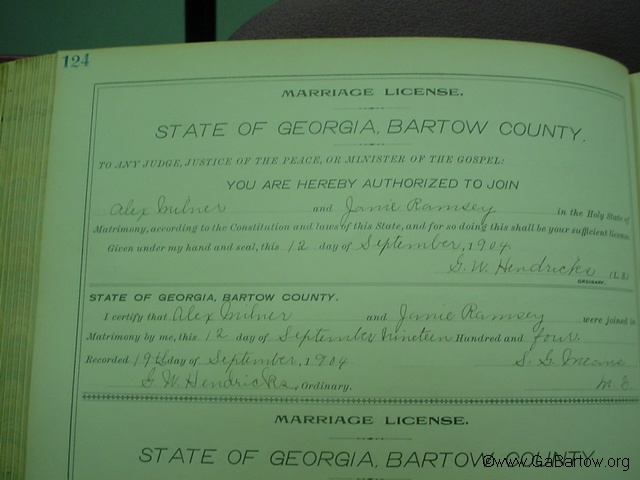 124
MARRIAGE LICENSE.
STATE OF GEORGIA, BARTOW COUNTY.
TO ANY JUDGE, JUSTICE OF THE PEACE, OR MINISTER OF THE GOSPEL:
YOU ARE HEREBY AUTHORIZED TO JOIN
Alex Milner and Janie Ramsey in the Holy State of
Matrimony, according to the Constitution and laws of this State, and for so doing this shall be your sufficient license.
Given under my hand and seal, this 12 day of September, 1904
G. W. Hendricks (L.S.)
ORDINARY.
STATE OF GEORGIA, BARTOW COUNTY.
I certify that Alex Milner and Janie Ramsey were joined in
Matrimony by me, this 12 day of September nineteen Hundred and four.
Recorded 19th day of September, 1904 S. G. Means
G. W. Hendricks, Ordinary. M. G.
MARRIAGE LICENSE.
STATE OF GEORGIA, BARTOW COUNTY.
©www.GaBartow.org